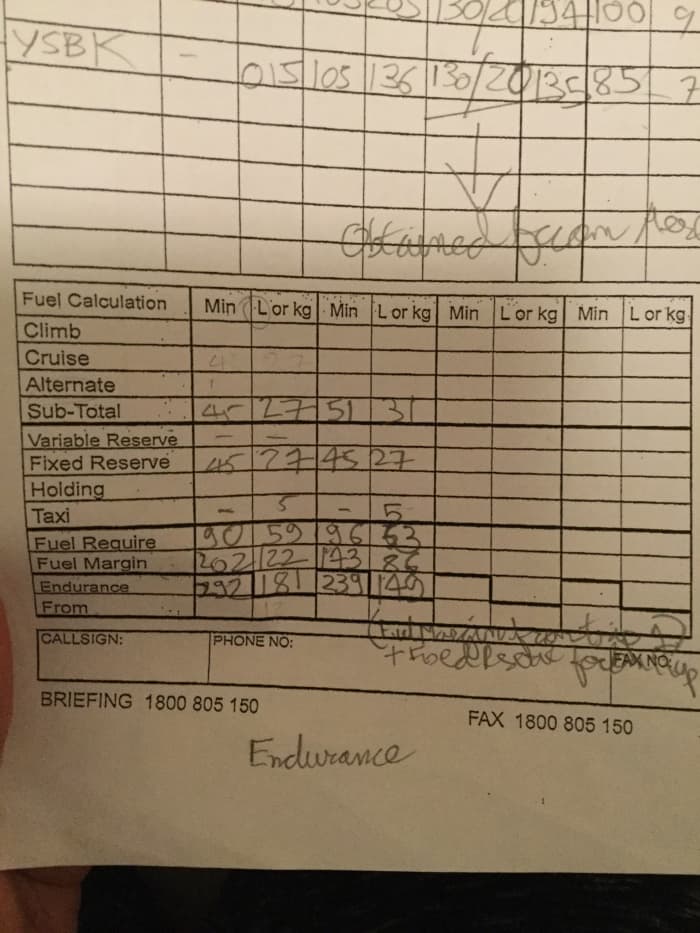 130/20 194 100 9
YSBK - 015 105 136 130/20 135 85 7
Obtained from
Fuel Calculation Min L or kg Min L or kg Min L or kg Min L or kg
Climb
Cruise
Alternate
Sub-Total 45 27 51 31
Variable Reserve - -
Fixed Reserve 45 27 45 27
Holding
Taxi - 5 - 5
Fuel Require 90 59 96 63
Fuel Margin 202 122 143 86
Endurance 292 181 239 149
From
(Fuel Margin from trip 1)
CALLSIGN: PHONE NO: + Fixed Reserve for FAX NO:
BRIEFING 1800 805 150 FAX 1800 805 150
Endurance